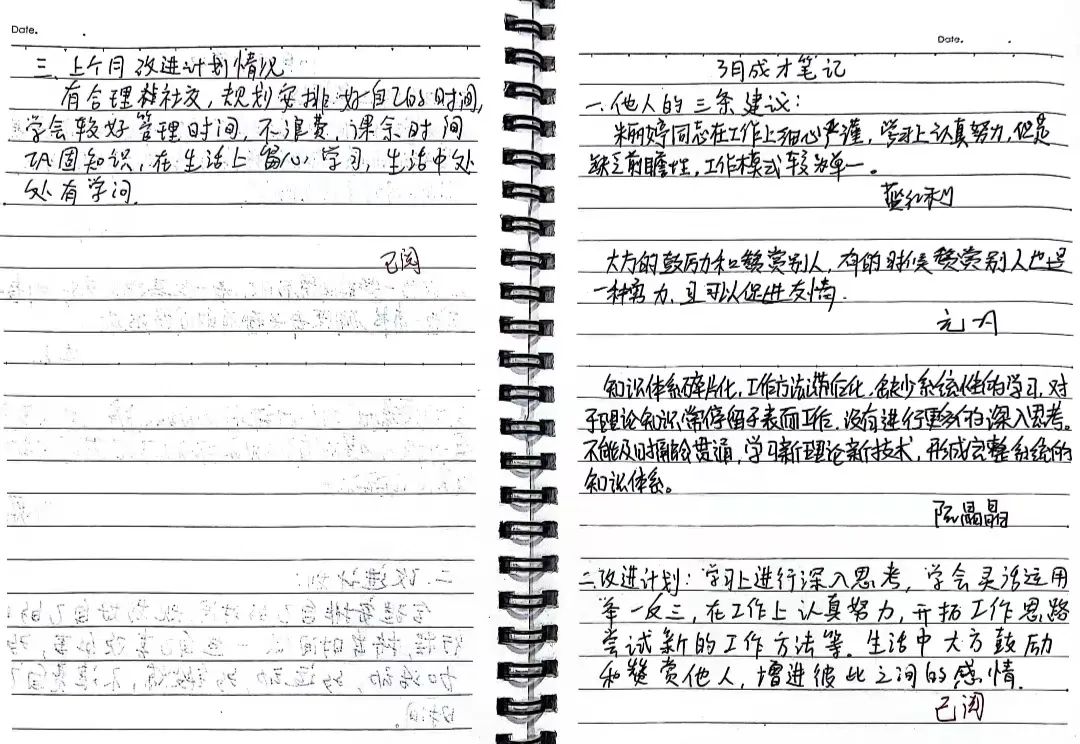 Date.
三、上个月改进计划情况
有合理社交，规划安排好自己的时间，
学会较好管理时间，不浪费，课余时间
巩固知识，在生活上留心学习，生活中处
处有学问.
已阅
Date.
3月成才笔记
一.他人的三条建议：
朱丽婷同志在工作上细心严谨，学习上认真努力，但是
缺乏前瞻性，工作模式较为单一。
蓝红利
大方的鼓励和赞赏别人，有的时候赞赏别人也是
一种努力，且可以促进友情.
知识体系碎片化，工作方法滞后化，缺少系统性的学习，对
于理论知识常停留于表面工作，没有进行更多的深入思考。
不能及时融会贯通，学习新理论新技术，形成完整系统的
知识体系。
阮晶晶
二.改进计划：学习上进行深入思考，学会灵活运用
举一反三，在工作上认真努力，开拓工作思路
尝试新的工作方法等. 生活中大方鼓励
和赞赏他人，增进彼此之间的感情.
已阅